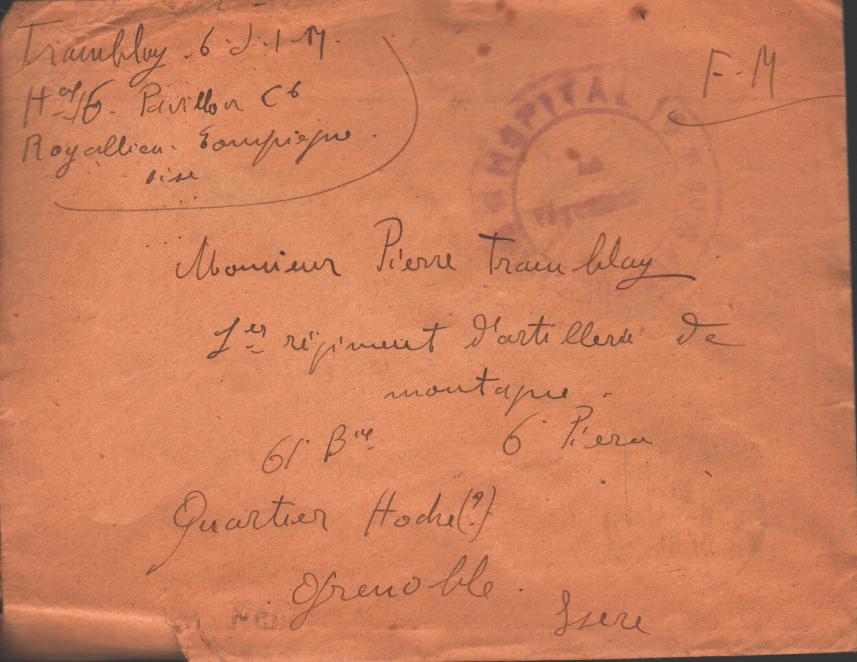 Tramblay 6 S.I.M.
Hal 16. Pavillon C6
Royallieu. Compiègne.
Oise
F.M
HOPITAL
Monsieur Pierre Tramblay
1er régiment d'artillerie de
montagne.
61e Bie 6e Pièce
Quartier Hoche(?)
Grenoble.
Isere